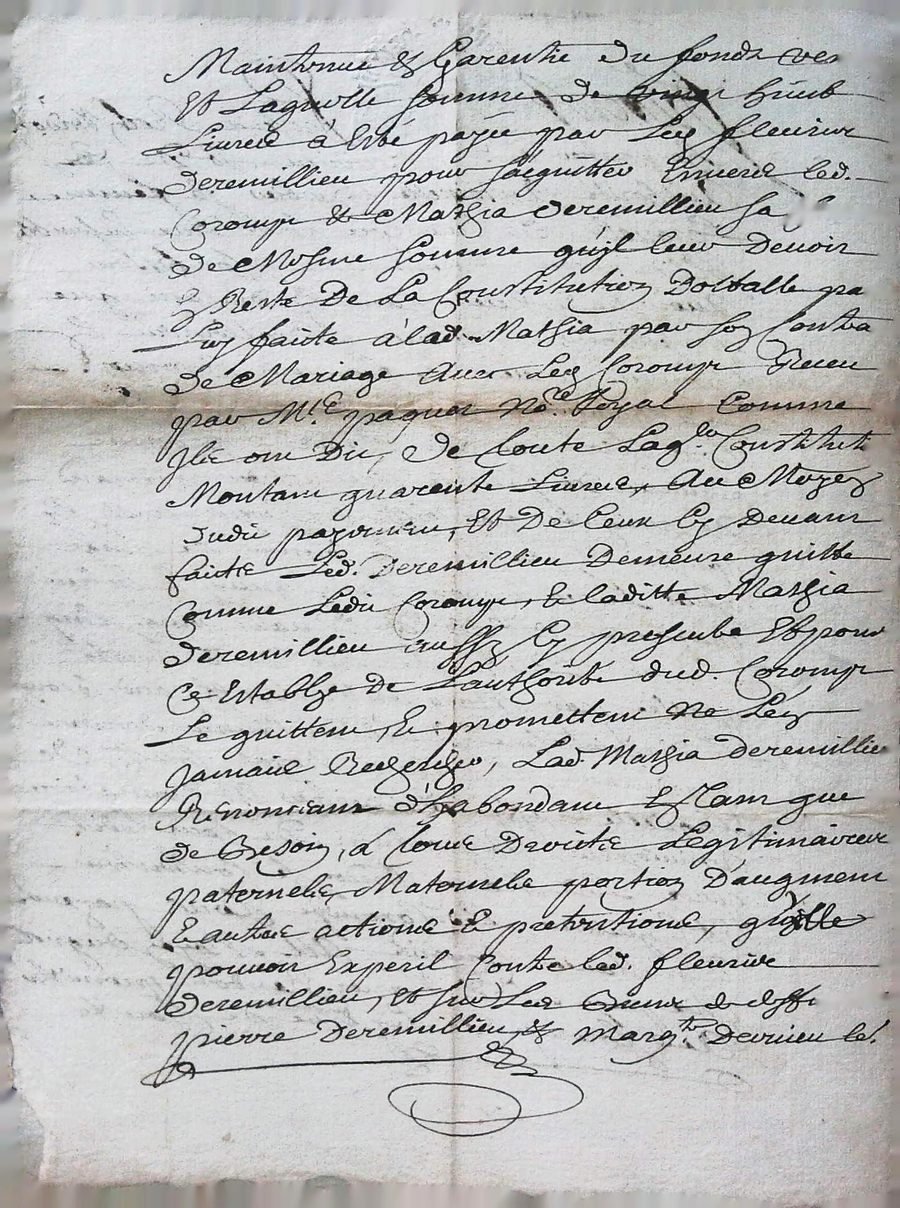 Maintenue & Garentie du fonds
Et Laquelle somme de vingt huict
Livres a esté payée par Led fleurive
deremillieu pour sacquitter Envers led.
Corompt & Mathia deremillieu sa
de Mesme somme quil leur Devoit
de Reste De La Constitution Dottalle pa
Luy faicte a lad. Mathia par son Contra
de Mariage avec Led Corompt Receu
par M.e paquet no.re Royal Comme
Ils ont Dit, de toute Laq.lle Constituti
Montant quarente Livres, Au Moyen
dudit payement, Et De Ceux Cy Devant
faicts Led. Deremillieu Demeure quitte
Comme Ledit Corompt, & laditte Mathia
deremillieu aussy Cy presente Et pour
Ce Establye de Lauthorité dud. Corompt
Le quittent, & promettent Ne Léy
Jamais Rechercher, Lad. Mathia deremillie
Renonceant d'habondant Estant que
de Besoin, A tous Droicts Legitimaires
paternels, Maternels portion D'augment
& autres actions & prétentions, qu'elle
pouvoit Experil Contre led. fleurive
deremillieu, Et sur Les Biens de deff.
pierre Deremillieu & Marg.te Devrieu